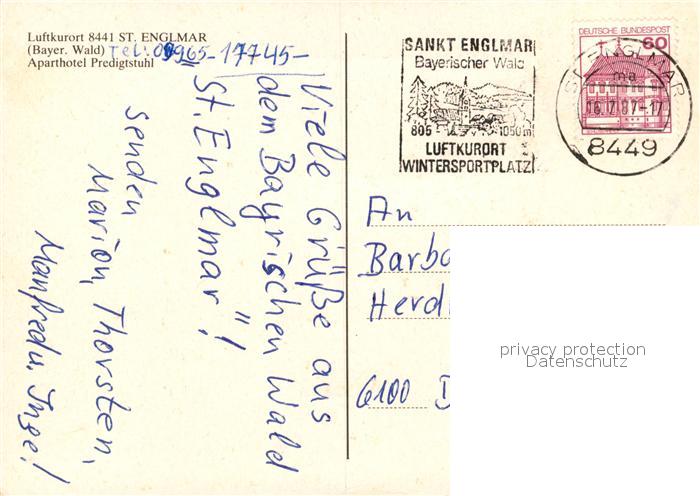 Luftkurort 8441 ST. ENGLMAR
(Bayer. Wald) Tel: 09965-17745-
Aparthotel Predigtstuhl
Viele Grüße aus
dem Bayrischen Wald
St. Englmar"!
senden
Marion, Thorsten,
Manfred u. Inge!
SANKT ENGLMAR
Bayerischer Wald
805 1050m
LUFTKURORT
WINTERSPORTPLATZ
DEUTSCHE BUNDESPOST
60
ST. ENGLMAR
ma
16.-7.87-17
8449
An
Barba
Herdi
6100 D
privacy protection
Datenschutz